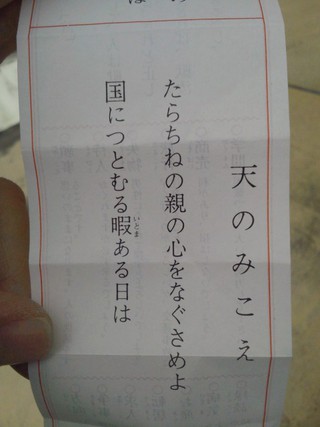 天のみこえ
たらちねの親の心をなぐさめよ
国につとむる暇ある日は
いとま